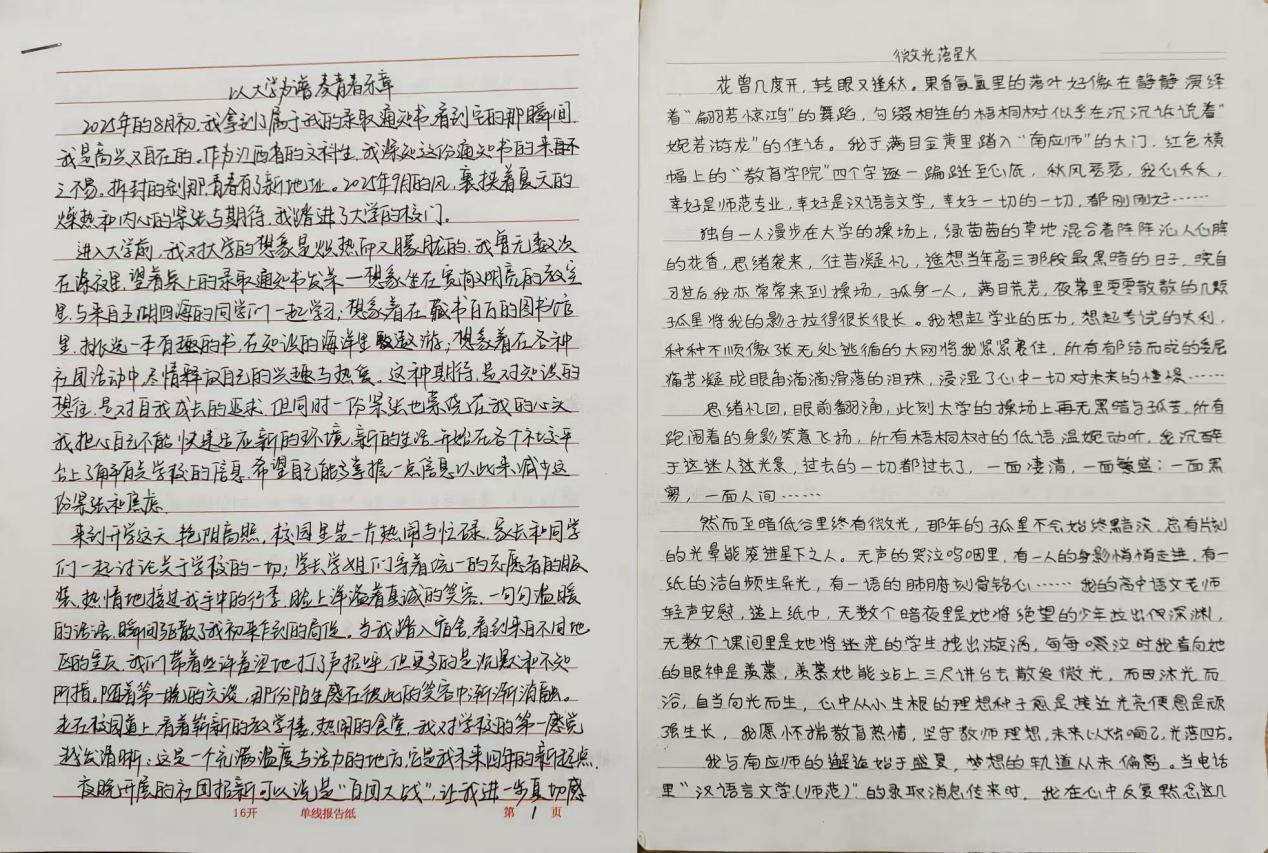 以大学为谱奏青春乐章
2025年的8月初,我拿到了属于我的录取通知书,看到它的那瞬间
我是高兴又自在的。作为江西省的文科生,我深知这份通知书的来路
之不易。拆封的刹那,青春有了新地址。2025年9月的风,裹挟着夏天的
燥热和内心的紧张与期待,我踏进了大学的校门。
进入大学前,我对大学的想象是炽热而又朦胧的。我曾无数次
在深夜里,望着桌上的录取通知书发呆——想象坐在宽敞明亮的教室
里,与来自五湖四海的同学们一起学习;想象着在藏书百万的图书馆
里,挑选一本有趣的书,在知识的海洋里遨游;想象着在各种
社团活动中,尽情释放自己的兴趣与热爱。这种期待,是对知识的
想往,是对自我成长的追求,但同时一份紧张也萦绕在我的心头
我担心自己不能快速适应新的环境、新的生活,开始在各个社交平
台上了解有关学校的信息,希望自己能多掌握一点信息,以此来减少这
份紧张和焦虑。
来到开学这天,艳阳高照,校园里是一片热闹与忙碌,家长和同学
们一起讨论关于学校的一切;学长学姐们穿着统一的志愿者的服
装,热情地接过我手中的行李,脸上洋溢着真诚的笑容,一句句温暖
的话语,瞬间驱散了我初来乍到的局促。当我踏入宿舍,看到来自不同地
区的室友,我们带着些许羞涩地打了声招呼,但更多的是沉默和不知
所措。随着第一晚的交谈,那份陌生感在彼此的笑容中渐渐消融。
走在校园道上,看着崭新的教学楼,热闹的食堂,我对学校的第一感觉
越发清晰:这是一个充满温度与活力的地方,它是我未来四年的新起点。
夜晚开展的社团招新可以说是“百团大战”,让我进一步真切感
16开 单线报告纸 第 1 页
微光落星火
花曾几度开,转眼又逢秋。果香氤氲里的落叶好像在静静演绎
着“翩若惊鸿”的舞蹈,勾缀相连的梧桐树似乎在沉沉诉说着“
婉若游龙”的佳话。我于满目金黄里踏入“南应师”的大门,红色横
幅上的“教育学院”四个字逐一蹁跹至心底,秋风瑟瑟,我心沃沃,
幸好是师范专业,幸好是汉语言文学,幸好一切的一切,都刚刚好……
独自一人漫步在大学的操场上,绿茵茵的草地混合着阵阵沁人心脾
的花香,思绪袭来,往昔凝忆,遥想当年高三那段最黑暗的日子,晚自
习过后我亦常常来到操场,孤身一人,满目荒芜,夜幕里零零散散的几颗
孤星将我的影子拉得很长很长。我想起学业的压力,想起考试的失利,
种种不顺像张无处逃循的大网将我紧紧裹住,所有郁结而成的委屈
痛苦凝成眼角滴滴滑落的泪珠,浸湿了心中一切对未来的憧憬……
思绪机回,眼前翻涌,此刻大学的操场上再无黑暗与孤苦,所有
跑闹着的身影笑意飞扬,所有梧桐树的低语温婉动听,我沉醉
于这迷人这光景,过去的一切都过去了,一面凄清,一面繁盛;一面黑
雾,一面人间……
然而至暗低谷里终有微光,那年的孤星不会始终黯淡,总有片刻
的光晕能突进星下之人。无声的哭泣呜咽里,有一人的身影悄悄走进,有一
纸的洁白频生异光,有一语的肺腑刻骨铭心……我的高中语文老师
轻声安慰,递上纸巾,无数个暗夜里是她将绝望的少年拉出深渊,
无数个课间里是她将迷茫的学生拽出漩涡,每每哽泣时我看向她
的眼神是羡慕,羡慕她能站上三尺讲台去散发微光,而因沐光而
浴,自当向光而生,心中从小生根的理想种子愈是接近光亮便愈是顽
强生长,我愿怀揣教育热情,坚守教师理想,未来以烛喻己,光落四方。
我与南应师的邂逅始于盛夏,梦想的轨道从未偏离。当电话
里“汉语言文学(师范)”的录取消息传来时,我在心中反复默念这几